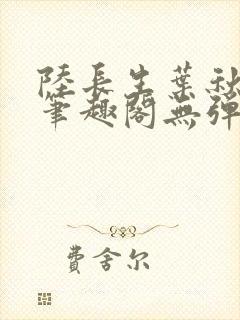 陸長生葉秋
筆趣閣無彈
費舍尔